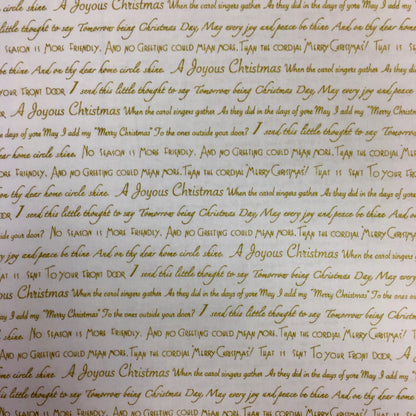 shine. A Joyous Christmas When the carol singers gather As they did in the days of yore May I
little thought to say Tomorrow being Christmas Day, May every joy and peace be thine And on thy
season is More Friendly, And no Greeting could Mean more, Than the cordial "Merry Christmas"! That is Sen
be thine And on thy dear home circle shine. A Joyous Christmas When the carol singers gather As they did in the
ore Friendly, And no Greeting could Mean more, Than the cordial "Merry Christmas"! That is sent To your
front Door I send this little thought to say Tomorrow being Christmas Day, May every
A Joyous Christmas When the carol singers gather As they did in the days of yore May I add my "Merry Christmas"
e days of yore May I add my "Merry Christmas" To the ones outside your door? I send this little thought to say
dear home circle shine. No season is More Friendly, And no Greeting could Mean more, Than the cordial
ore Friendly, And no Greeting could Mean more, Than the cordial "Merry Christmas"! That is sent To your
on thy dear home circle shine. A Joyous Christmas When the carol singers gather As they did in the days of
oor I send this little thought to say Tomorrow being Christmas Day, May every joy and peace be thine And on
side your door? No season is More Friendly, And no Greeting could Mean more, Than the cordial "Merry Christmas"!
peace be thine And on thy dear home circle shine. A Joyous Christmas When the carol singers gather As they
That is sent To your front Door I send this little thought to say Tomorrow being Christmas Day, May every
Joyous Christmas When the carol singers gather As they did in the days of yore May I add my "Merry Christmas" To the ones
Christmas" To the ones outside your door? I send this little thought to say Tomorrow being Christmas Day, May every
ircle shine. No season is More Friendly, And no Greeting could Mean more, Than the cordial "Merry Christmas"!
And no Greeting could Mean more, Than the cordial "Merry Christmas"! That is sent To your front Door A
home circle shine. A Joyous Christmas When the carol singers gather As they did in the days of yore May I add my
little thought to say Tomorrow being Christmas Day, May every joy and peace be thine And on thy